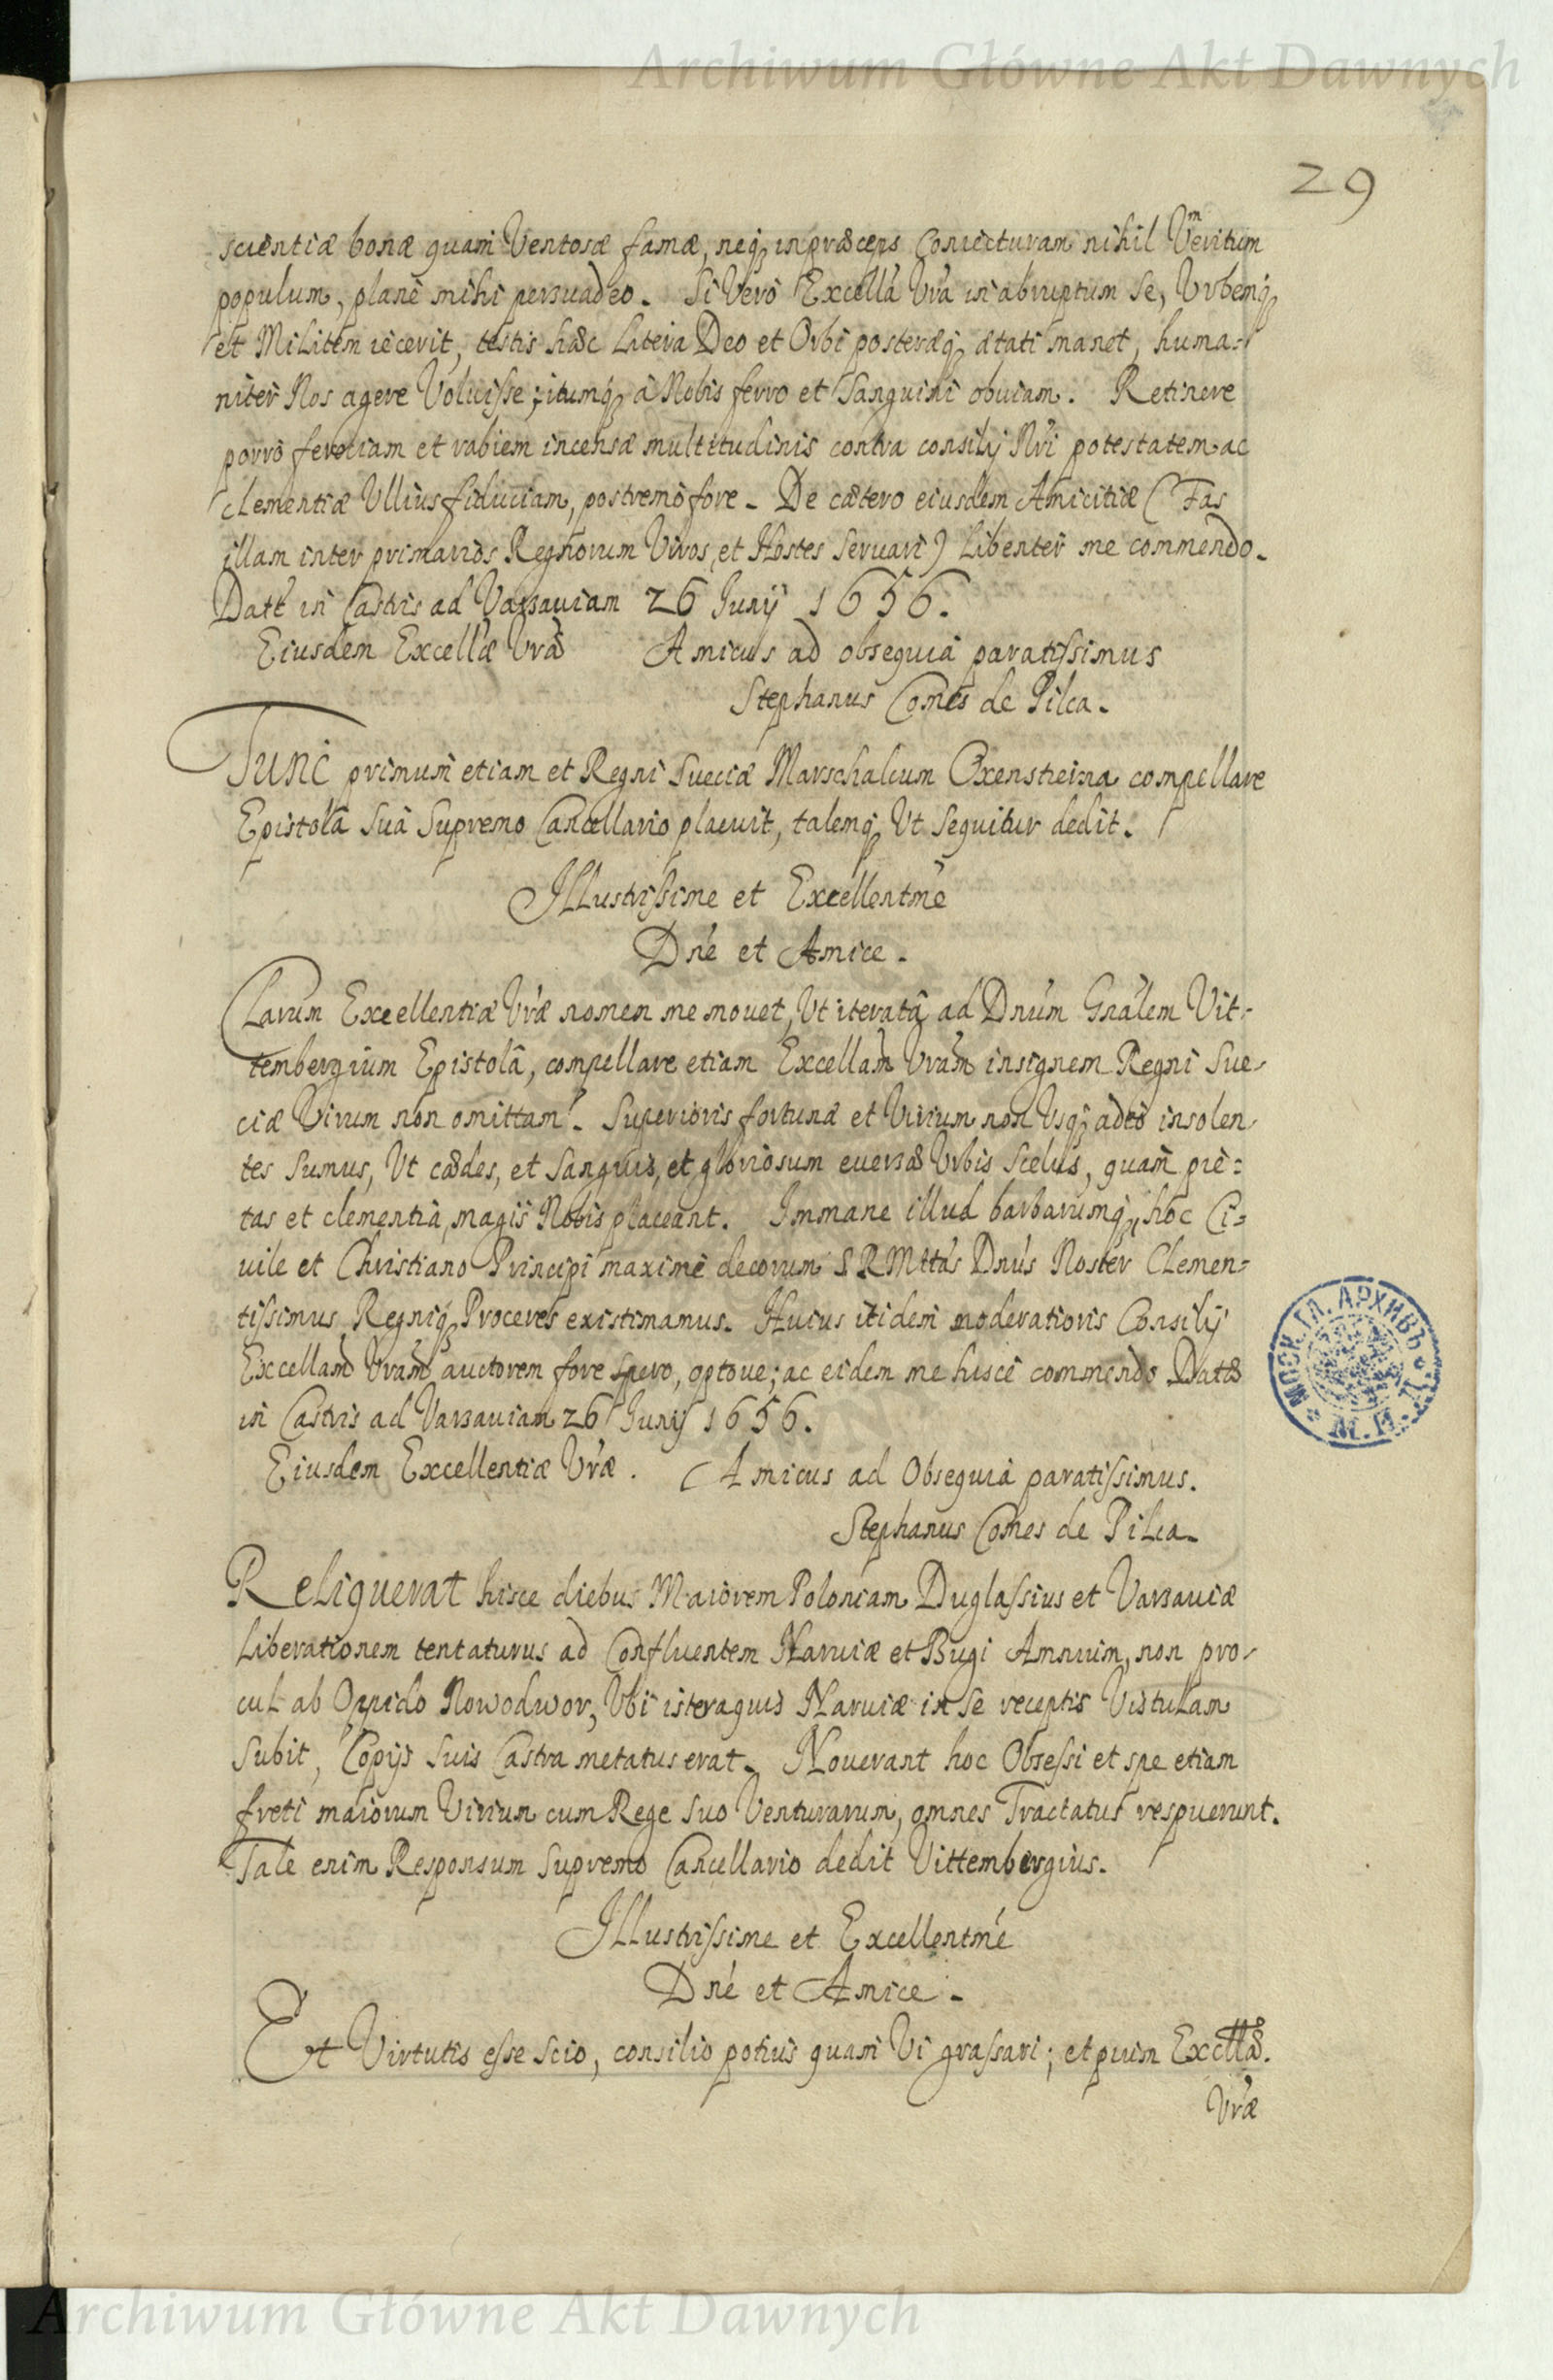 Archiwum Główne Akt Dawnych
29
scientiæ bonæ quam Ventosæ famæ, neq; in præceps coniecturam nihil Veritum
populum, planè mihi persuadeo. Si Verò Excellã Vrã in abruptum se, Vrbemq;
et Militem iecerit, testis hæc Litera Deo et Orbi posteræq; ætati manet, huma-
niter Nos agere Voluisse; itumq; à Nobis ferro et Sanguini obuiam. Retinere
porrò ferociam et rabiem incensæ multitudinis contra consilij Nri potestatem ac
clementiæ Vllius fiduciam, postremò fore. De cætero eiusdem Amicitiæ (Fas
illam inter primarios Regnorum Viros, et Hostes Servari) Libenter me commendo.
Datt in Castris ad Varsauiam 26 Junÿ 1656.
Eiusdem Excellæ Vræ Amicus ad obsequia paratissimus
Stephanus Comes de Pilca.
Tunc primum etiam et Regni Sueciæ Marschalcum Oxenstierna compellare
Epistolâ Suâ Supremo Cancellario placuit, talemq; Vt Sequitur dedit.
Illustrissime et Excellentme
Dne et Amice.
Clarum Excellentiæ Vræ nomen me mouet, Vt iteratâ ad Dnum Gnalem Vit-
tembergium Epistolâ, compellare etiam Excellam Vram insignem Regni Sue-
ciæ Virum non omittam. Superioris fortunæ et Virium non Vsq; adeo insolen-
tes Sumus, Vt cædes, et Sanguis, et gloriosum euersæ Vrbis Scelus, quam pie-
tas et clementia, magis Nobis placeant. Immane illud barbarumq; hoc Ci-
uile et Christiano Principi maximè decorum S R Mttas Dnus Noster Clemen-
tissimus, Regniq; Proceres existimamus. Huius itidem moderationis Consilij
Excellam Vram auctorem fore spero, optoue; ac eidem me hisce commendo Datt
in Castris ad Varsauiam 26 Junÿ 1656.
Eiusdem Excellentiæ Vræ. Amicus ad Obsequia paratissimus.
Stephanus Comes de Pilca.
Reliquerat hisce diebus Maiorem Poloniam Duglassius et Varsauiæ
Liberationem tentaturus ad Confluentem Naruiæ et Bugi Amnium, non pro-
cul ab Oppido Nowodwor, Vbi ister aquis Naruiæ in se receptis Vistulam
Subit, Copijs Suis Castra metatus erat. Nouerant hoc Obsessi et spe etiam
freti maiorum Virium cum Rege Suo Venturarum, omnes Tractatus respuerunt.
Tale enim Responsum Supremo Cancellario dedit Vittembergius.
Illustrissime et Excellentme
Dne et Amice.
Et Virtutis esse Scio, consilio potius quam Vi grassari; et pium Excttæ.
Vræ
МОСК. ГЛ. АРХИВЪ М. И. Д.
Archiwum Główne Akt Dawnych